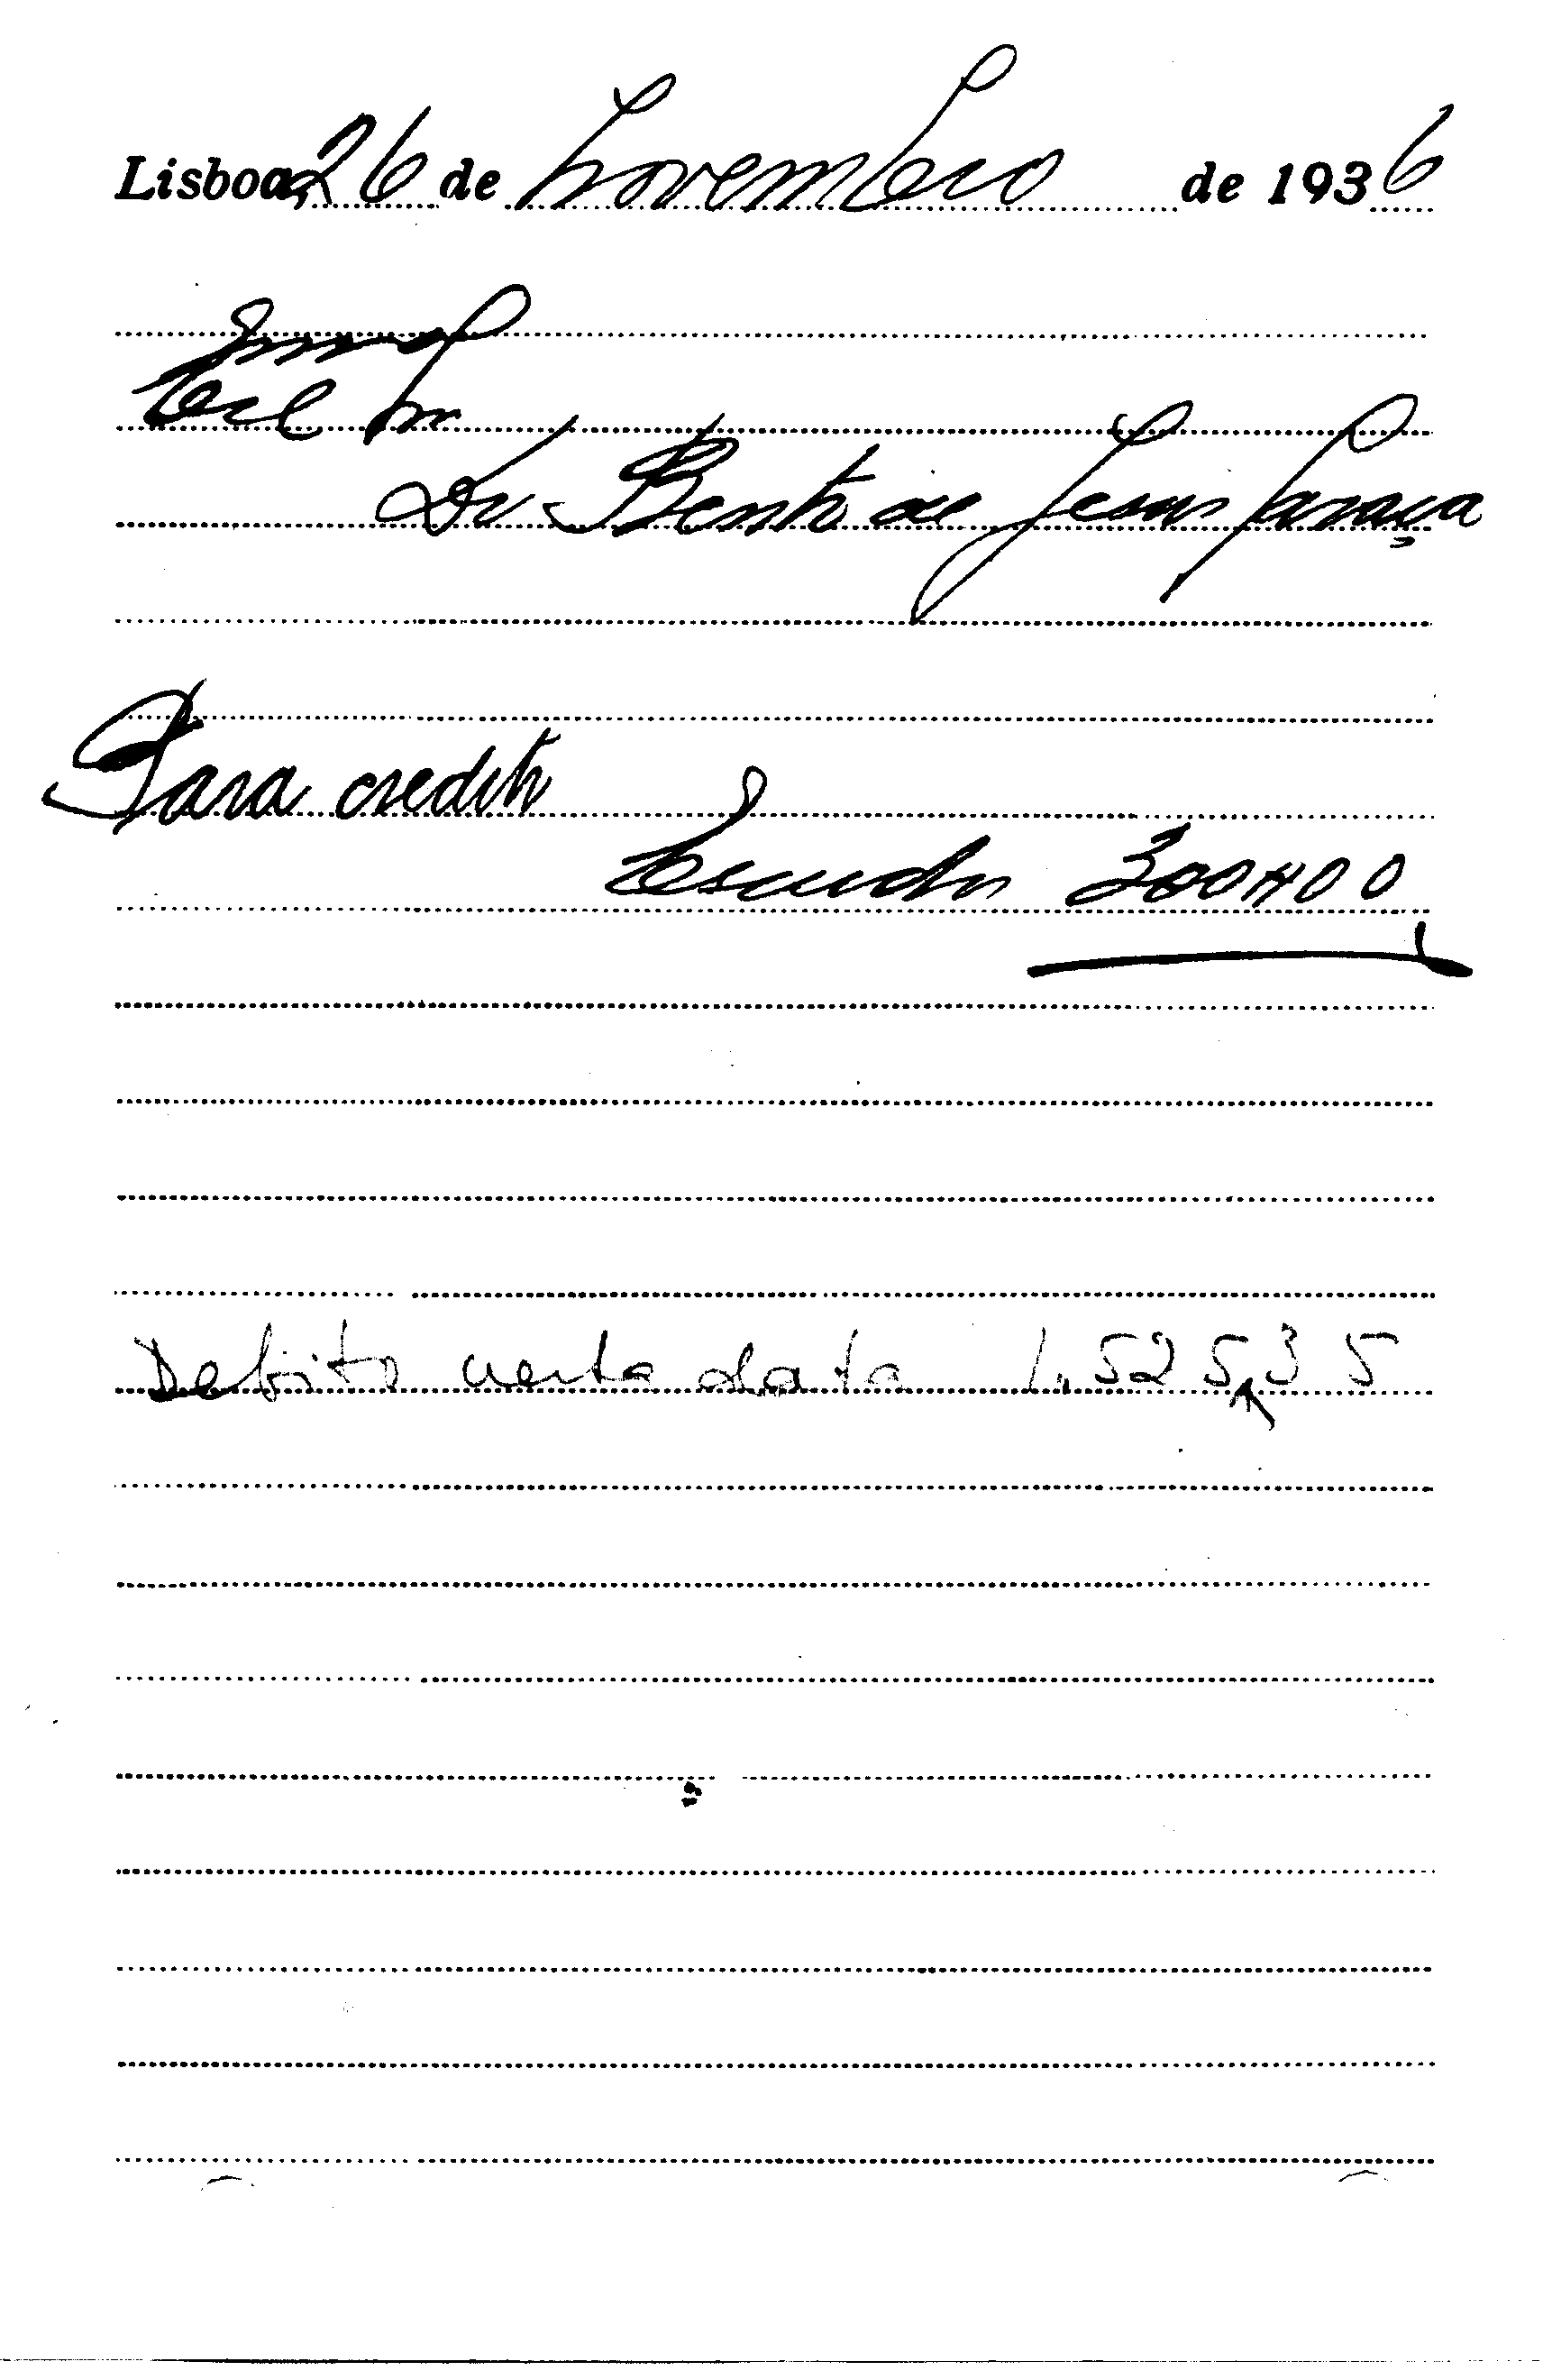 Lisboa, 26 de Novembro de 1936
Exmo Sr
Dr Bento de Jesus Caraça
Para credito
Escudos 300$00
Debito nesta data 1.525$35